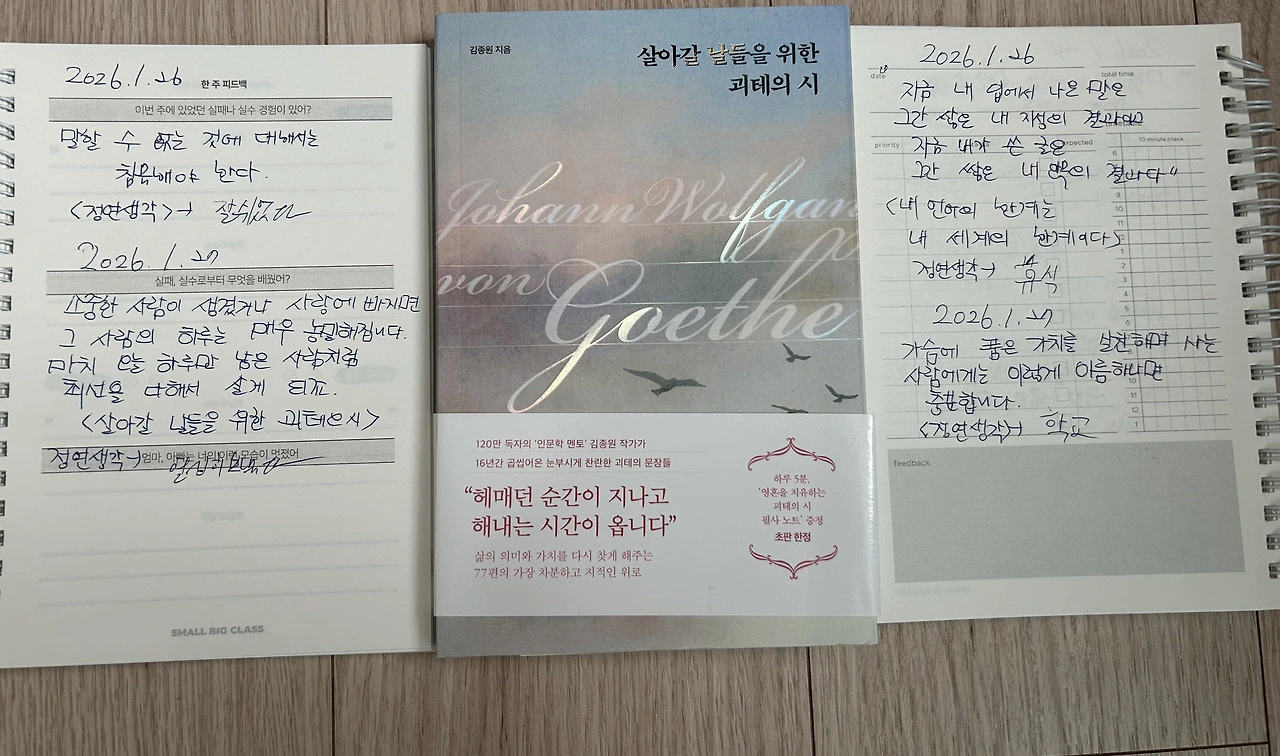 2026.1.26
한 주 피드백
이번 주에 있었던 실패나 실수 경험이 있어?
말할 수 없는 것에 대해서는
침묵해야 한다.
<정연생각>→
2026.1.27
실패, 실수로부터 무엇을 배웠어?
소중한 사람이 생겼거나 사랑에 빠지면
그 사람의 하루는 매우 농밀해집니다.
마치 오늘 하루만 남은 사람처럼
최선을 다해서 살게 되죠.
<살아갈 날들을 위한 괴테의 시>
정연생각→
엄마, 아빠는 너의 이런 모습이 멋졌어
SMALL BIG CLASS
김종원 지음
살아갈 날들을 위한
괴테의 시
Johann Wolfgan
von
Goethe
120만 독자의 '인문학 멘토' 김종원 작가가
16년간 곱씹어온 눈부시게 찬란한 괴테의 문장들
“헤매던 순간이 지나고
해내는 시간이 옵니다”
삶의 의미와 가치를 다시 찾게 해주는
77편의 가장 차분하고 지적인 위로
하루 5분,
'영혼을 치유하는
괴테의 시
필사 노트' 증정
초판 한정
2026.1.26
date
total time
지금 내 입에서 나온 말은
그간 쌓은 내 지성의 결과이고
priority
expected
10 minute check
지금 내가 쓴 글은
그간 쌓은 내 안목의 결과다"
<내 언어의 한계는
내 세계의 한계이다>
정연생각→ 휴식
2026.1.27
가슴에 품은 가치를 실천하며 사는
사람에게는 이렇게 이름 하나면
충분합니다.
<정연생각→ 학교
feedback